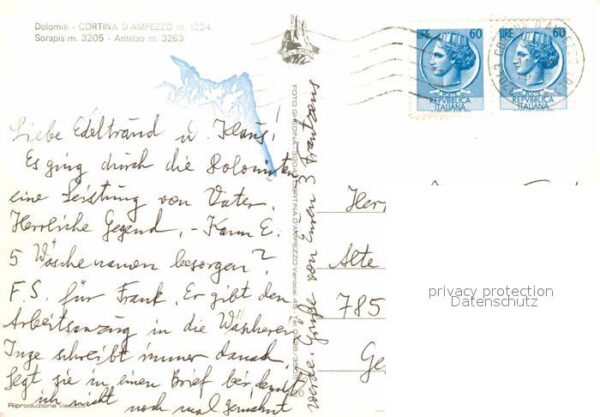 Dolomiti - CORTINA D'AMPEZZO m. 1224
Sorapis m. 3205 - Antelao m. 3263
LIRE 60
POSTE
REPUBBLICA
ITALIANA
LIRE 60
POSTE
REPUBBLICA
ITALIANA
Liebe Edeltraud u. Klaus!
Es ging durch die Dolomiten
eine Leistung von Vater.
Herrliche Gegend. - Kann E.
5 Wäschenamen besorgen?
F.S. für Frank. Er gibt den
Arbeitsanzug in die Wäscherei
Inge schreibt immer danach
legt sie in einen Brief bei, damit
ich nicht noch mal gemahnt
werde. Grüße von Euren 3 Frantzens
CORTINA D'AMPEZZO
Her
Alte
785
Ge
privacy protection
Datenschutz
Riproduzione vietata